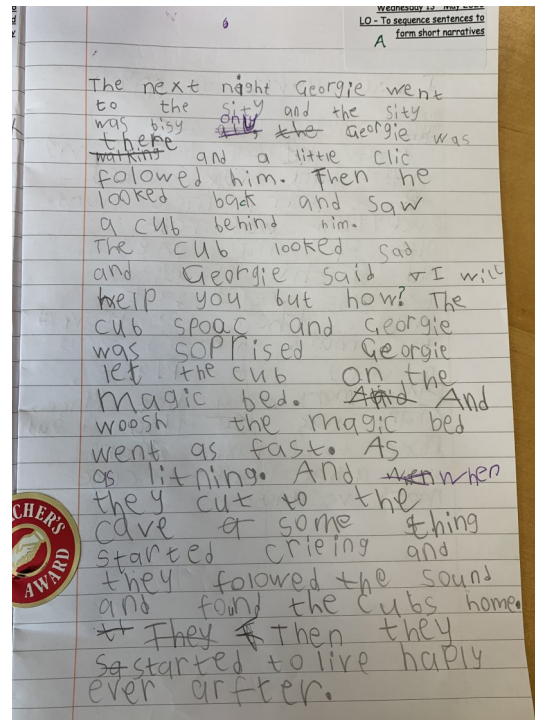 Wednesday 13th May
LO - To sequence sentences to
form short narratives
A
The next night Georgie went
to the sity and the sity
was bisy only the Georgie was
there
walking and a little clic
folowed him. Then he
looked back and saw
a cub behind him.
The cub looked sad
and Georgie said I will
help you but how? The
cub spoac and Georgie
was soprised Georgie
let the cub on the
magic bed. And And
woosh the magic bed
went as fast. As
as litning. And wen when
they cut to the
cave some thing
started crieing and
they folowed the sound
and found the cubs home.
They Then they
started to live haply
ever arfter.
CHER'S
AWARD